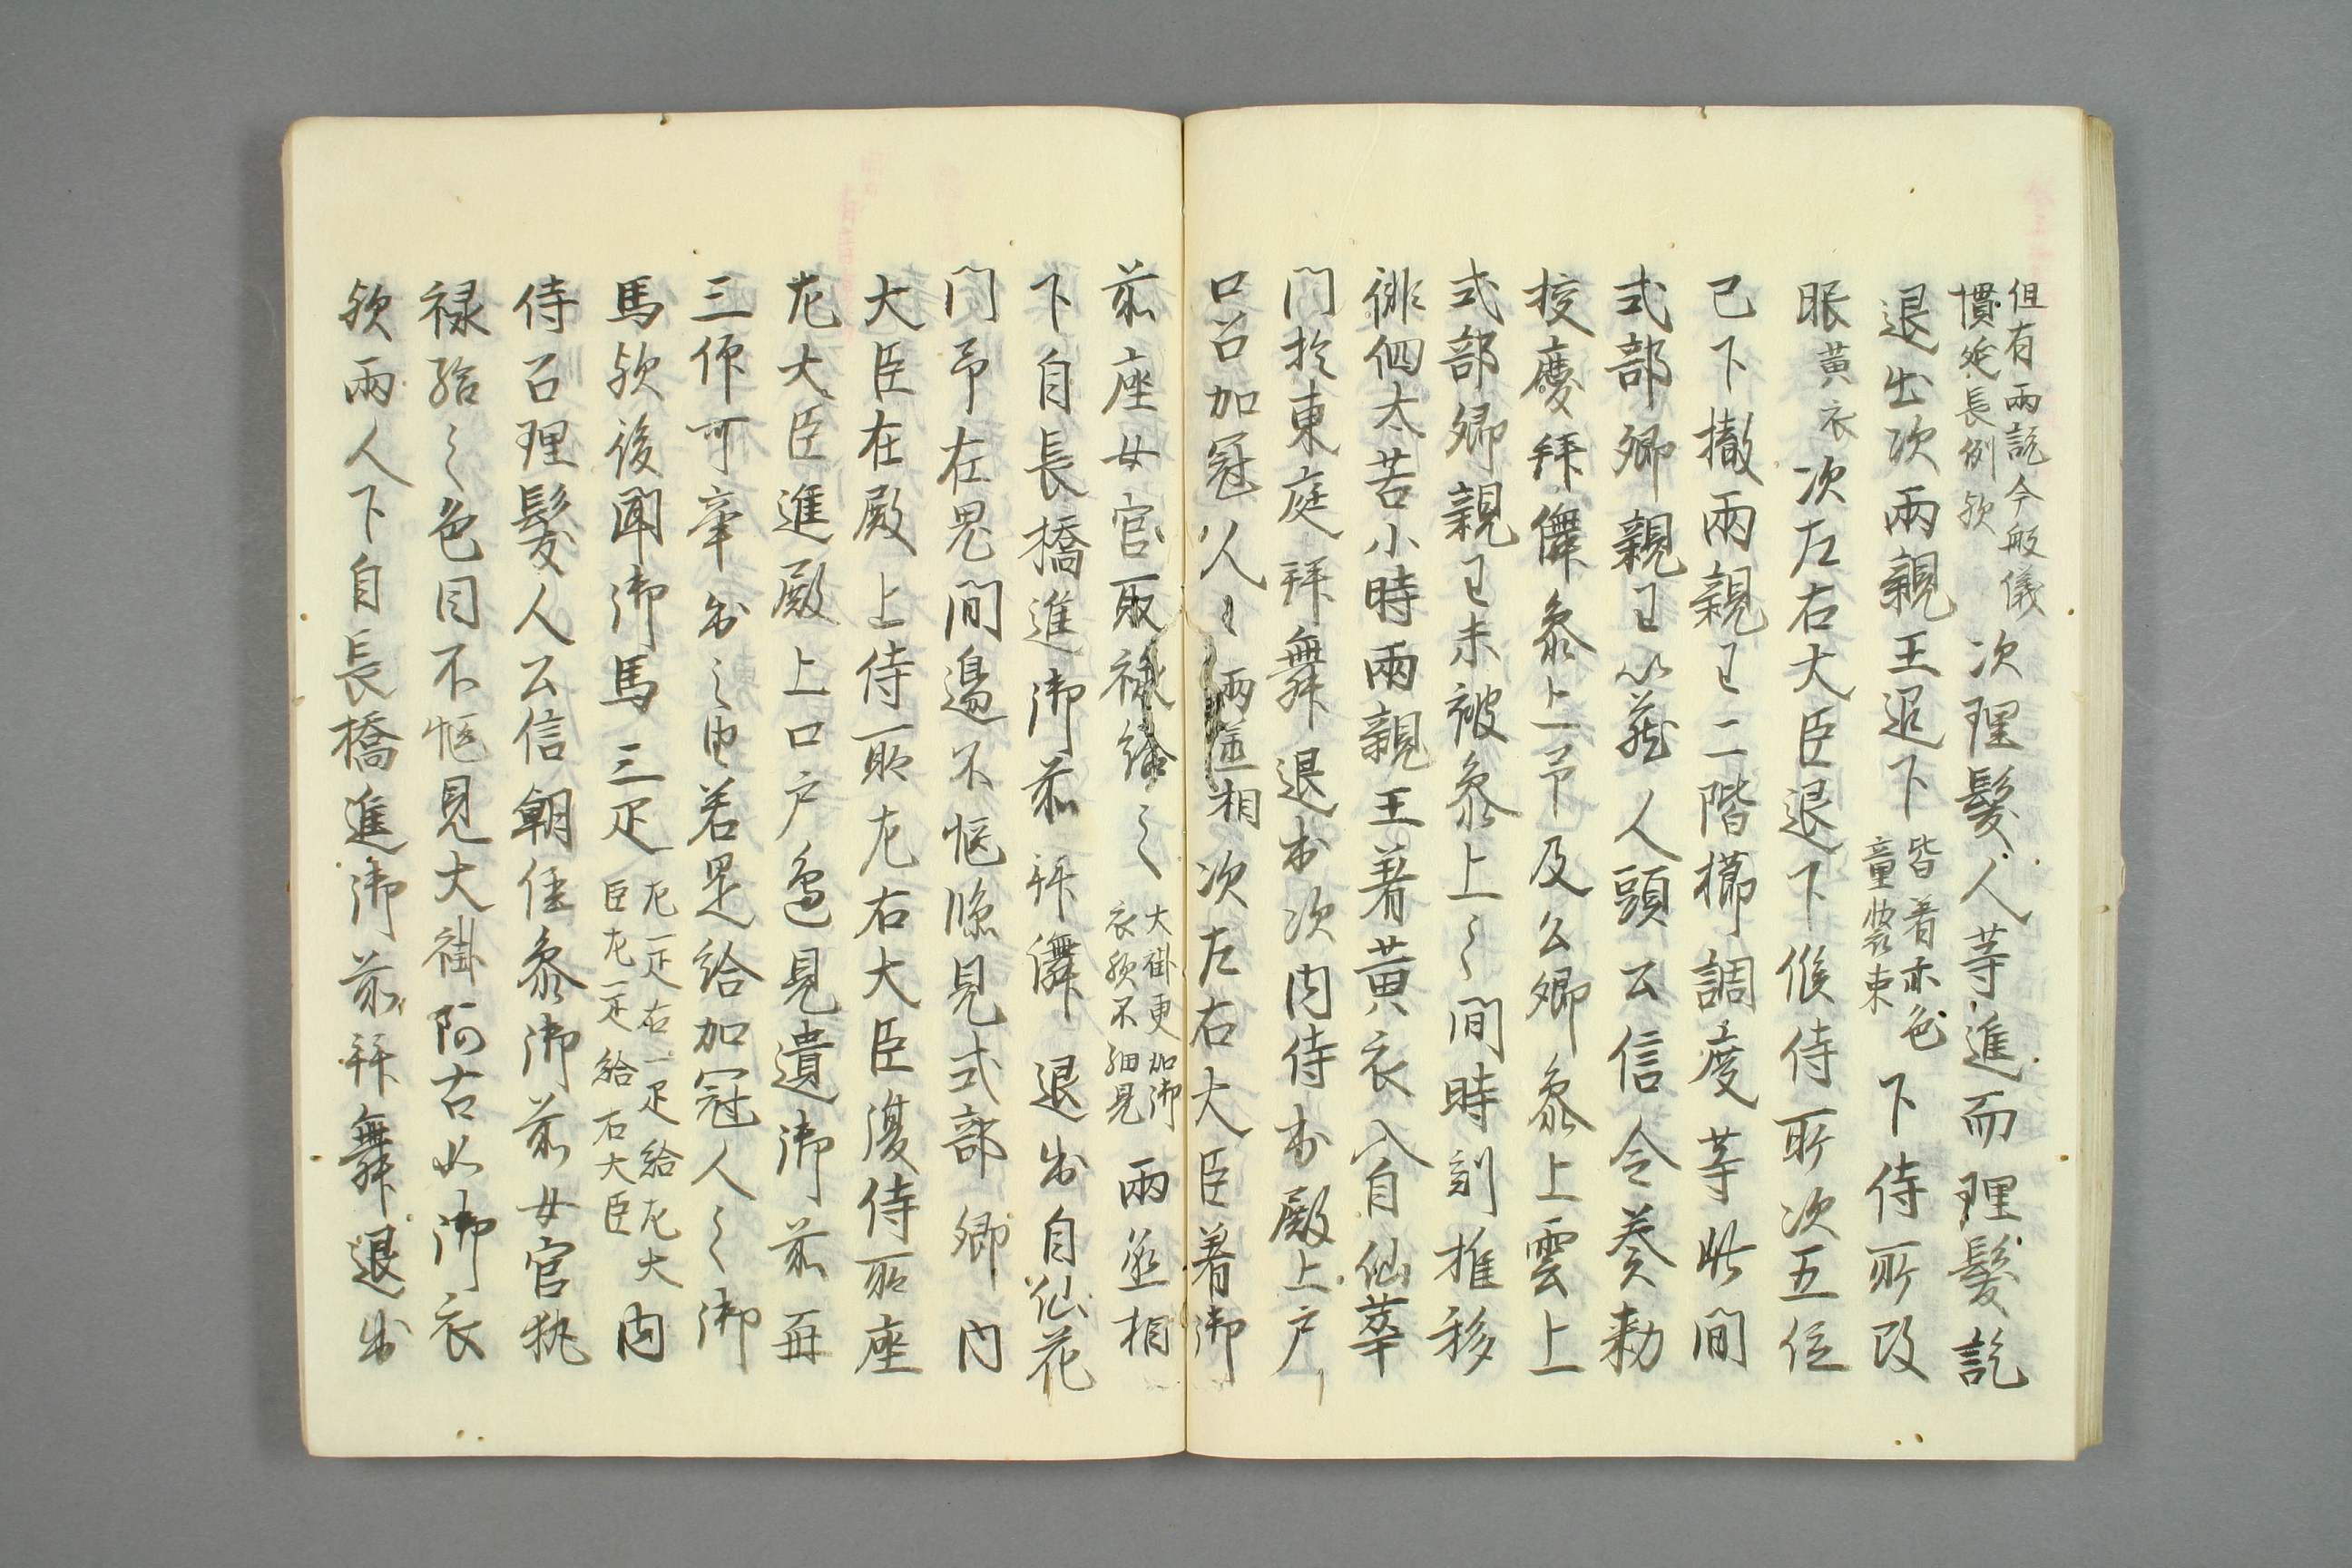 但有両説今般儀
慣延長例欤
次理髪人等進而理髪訖
退出次兩親王退下
皆着赤色
童装束
下侍所改
眼黄衣次左右大臣退下候侍所次五位
已下撤兩親王二階櫛調度等此間
式部卿親王以蔵人頭公信令奏勅
授慶拝儛参上予及公卿参上雲上
式部卿親王未被参上之間時刻推移
徘徊太苦小時兩親王著黄衣入自仙華
門於東庭拝舞退出次内侍出殿上戸
口召加冠人々兩丞相次左右大臣着御
前座女官取禄給之
大褂更加御
衣欤不細見
兩丞相
下自長橋進御前拝儛退出自仙花
門予在鬼間邊不慥隠見式部卿内
大臣在殿上侍所左右大臣復侍所座
左大臣進殿上口戸邊見遣御前再
三仰可牽出之由若是給加冠人之御
馬欤後聞御馬三疋
左一疋右一疋給左大
臣左一疋給右大臣
内
侍召理髪人公信朝任参御前女官執
禄給之色目不慥見大褂阿古女御衣
欤兩人下自長橋進御前拝舞退出